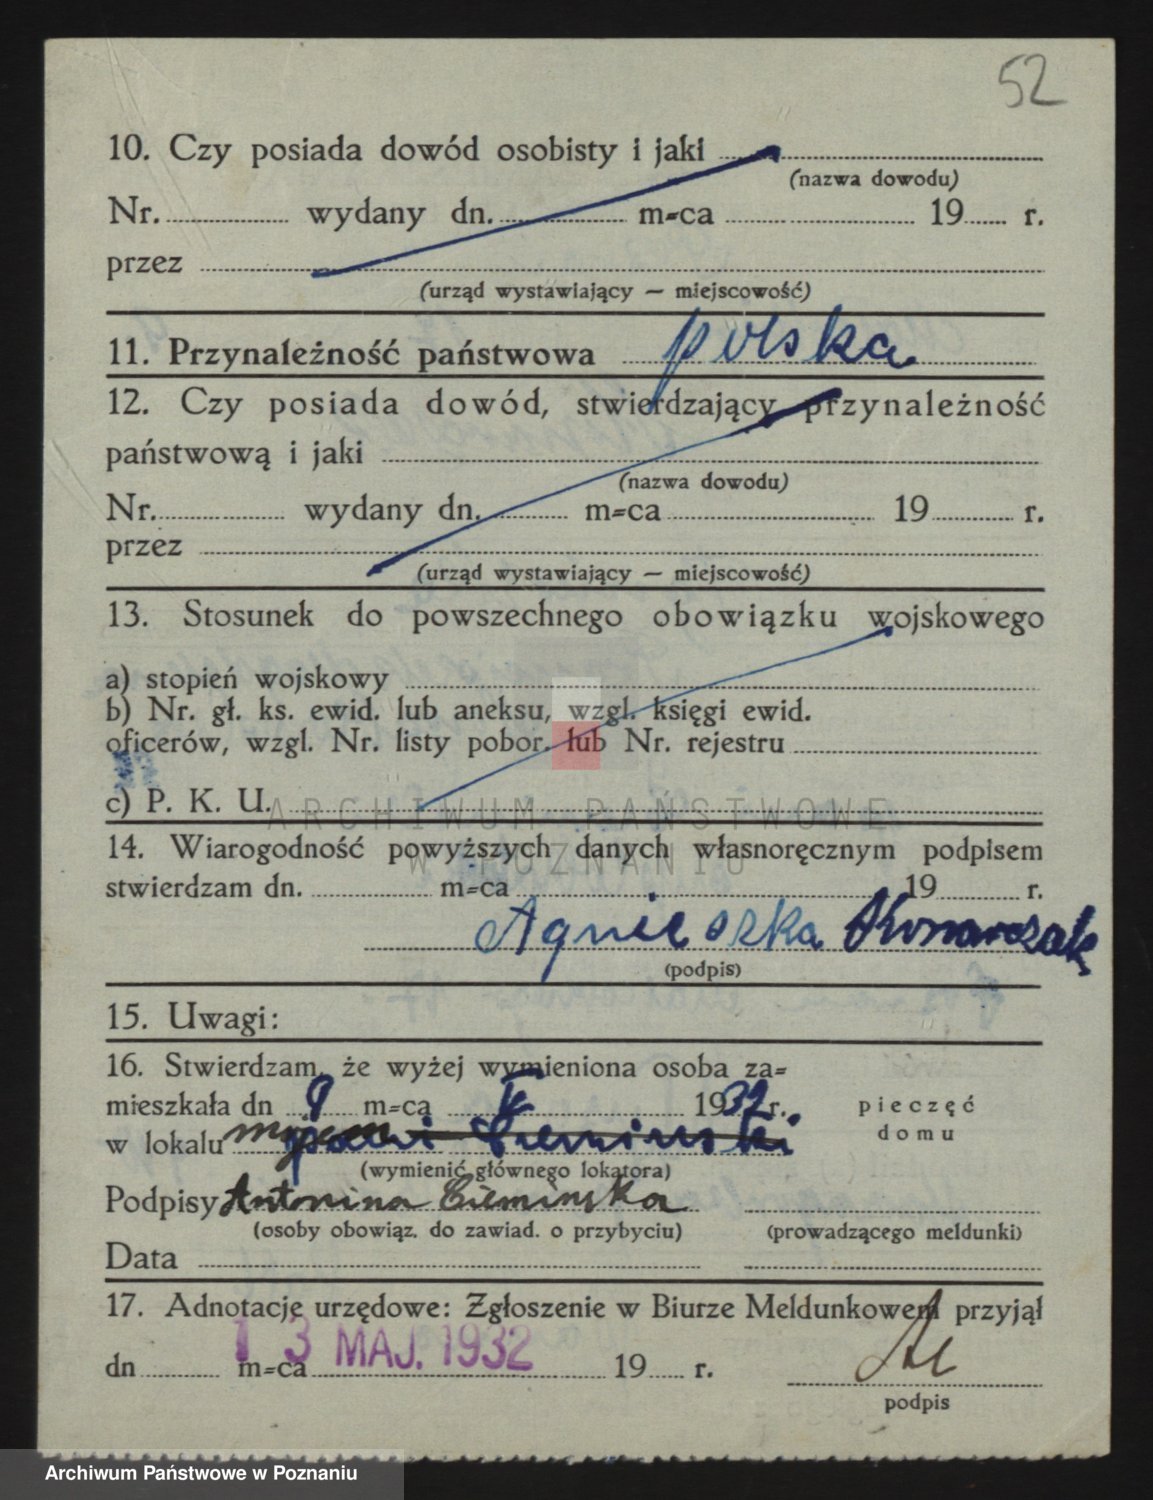 52
10. Czy posiada dowód osobisty i jaki
(nazwa dowodu)
Nr. wydany dn. m=ca 19 r.
przez
(urząd wystawiający — miejscowość)
11. Przynależność państwowa polska
12. Czy posiada dowód, stwierdzający przynależność
państwową i jaki
(nazwa dowodu)
Nr. wydany dn. m=ca 19 r.
przez
(urząd wystawiający — miejscowość)
13. Stosunek do powszechnego obowiązku wojskowego
a) stopień wojskowy
b) Nr. gł. ks. ewid. lub aneksu, wzgl. księgi ewid.
oficerów, wzgl. Nr. listy pobor. lub Nr. rejestru
c) P. K. U.
ARCHIWUM PAŃSTWOWE
W POZNANIU
14. Wiarogodność powyższych danych własnoręcznym podpisem
stwierdzam dn. m=ca 19 r.
Agnieszka Konarczak
(podpis)
15. Uwagi:
16. Stwierdzam, że wyżej wymieniona osoba za=
mieszkała dn 9 m=ca V 1932 r.
pieczęć
domu
w lokalu mojem
(wymienić głównego lokatora)
Podpisy Antonina Ciemińska
(osoby obowiąz. do zawiad. o przybyciu) (prowadzącego meldunki)
Data
17. Adnotacje urzędowe: Zgłoszenie w Biurze Meldunkowem przyjął
13 MAJ. 1932
dn m=ca 19 r.
podpis
Archiwum Państwowe w Poznaniu